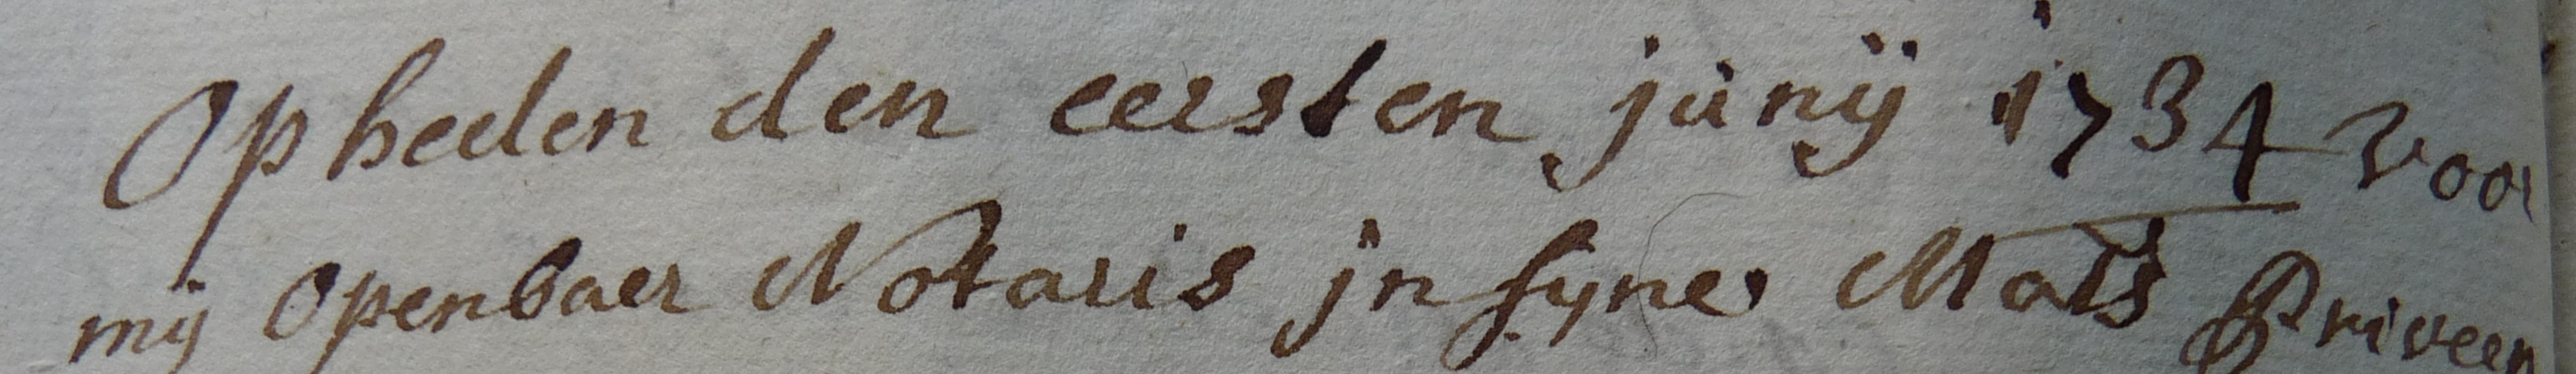 Op heden den eersten junij 1734 voor
mij openbaer Notaris jn syne Mats Priveen